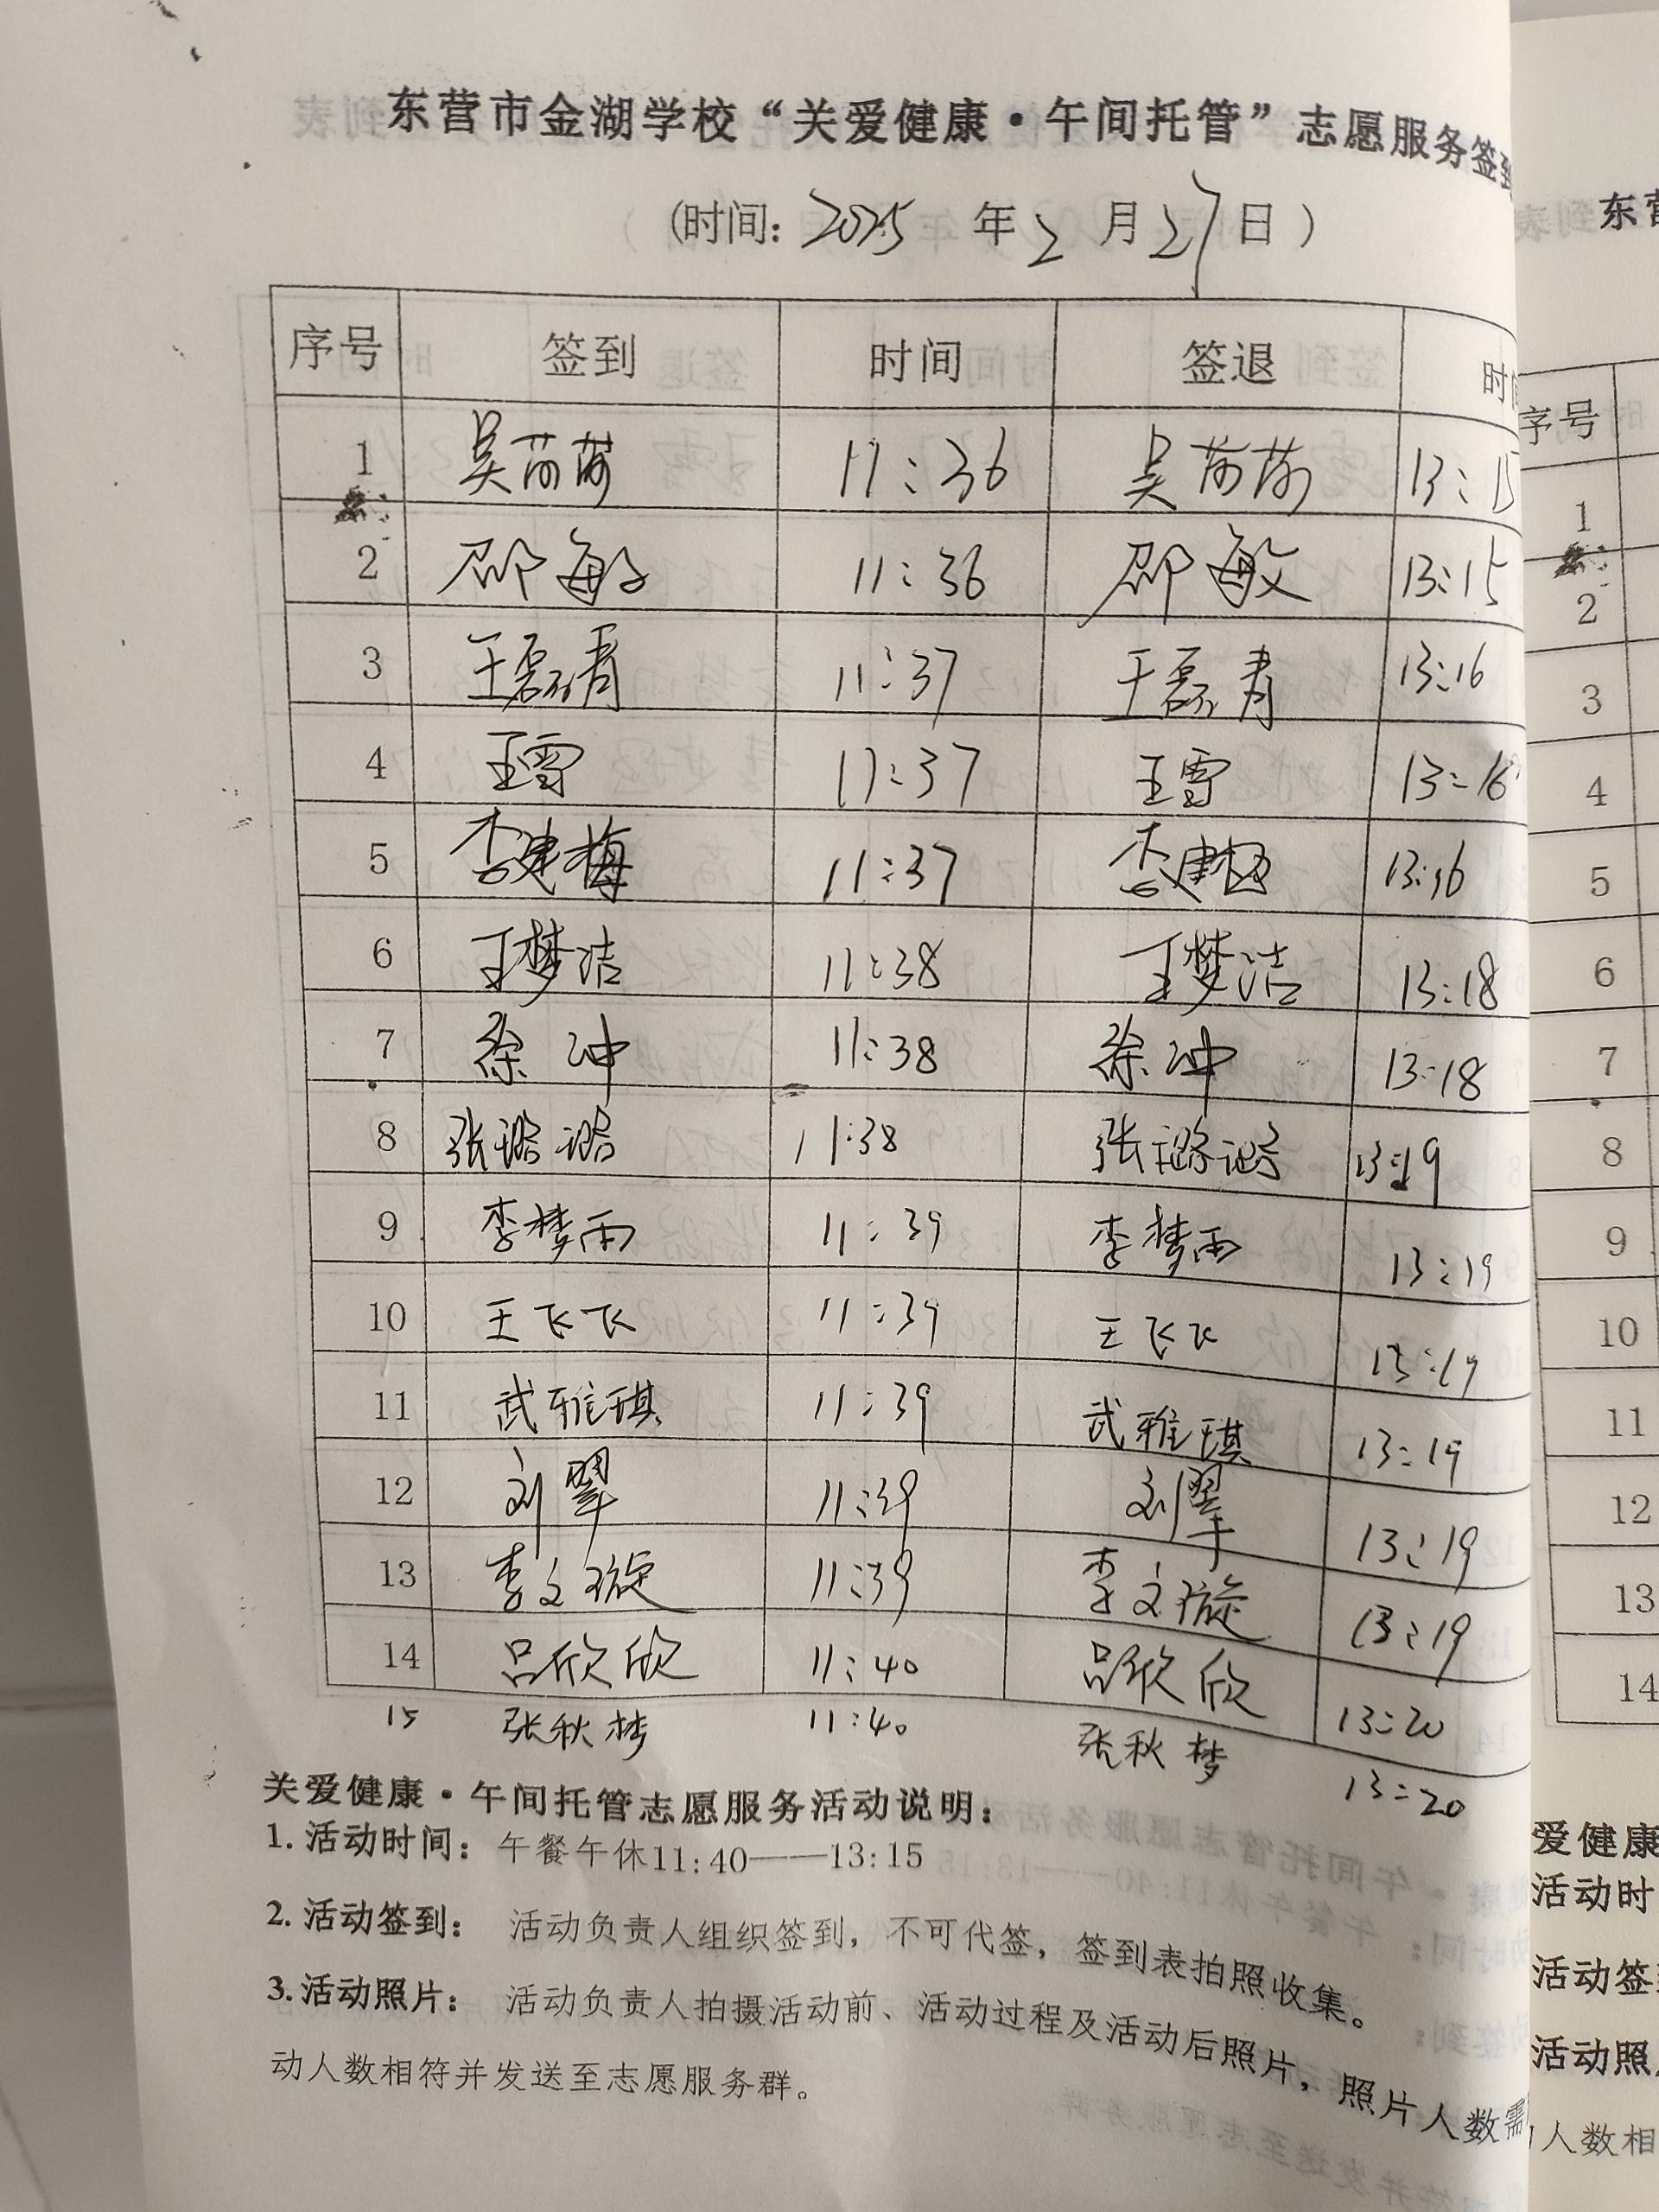 东营市金湖学校“关爱健康·午间托管”志愿服务签到
(时间: 2025 年 2 月 27 日 )
序号 签到 时间 签退 时间
1 吴莎莎 11:36 吴莎莎 13:15
2 邵敏 11:36 邵敏 13:15
3 王磊青 11:37 王磊青 13:16
4 王雪 11:37 王雪 13:16
5 李建梅 11:37 李建梅 13:16
6 王梦洁 11:38 王梦洁 13:18
7 徐冲 11:38 徐冲 13:18
8 张璐璐 11:38 张璐璐 13:19
9 李梦雨 11:39 李梦雨 13:19
10 王飞飞 11:39 王飞飞 13:19
11 武雅琪 11:39 武雅琪 13:19
12 刘翠 11:39 刘翠 13:19
13 李文璇 11:39 李文璇 13:19
14 吕欣欣 11:40 吕欣欣 13:20
15 张秋梦 11:40 张秋梦 13:20
关爱健康·午间托管志愿服务活动说明:
1. 活动时间: 午餐午休11:40——13:15
2. 活动签到: 活动负责人组织签到，不可代签，签到表拍照收集。
3. 活动照片: 活动负责人拍摄活动前、活动过程及活动后照片，照片人数需
动人数相符并发送至志愿服务群。
东营
序号
1
2
3
4
5
6
7
8
9
10
11
12
13
14
爱健康
活动时
活动签
活动照
人数相